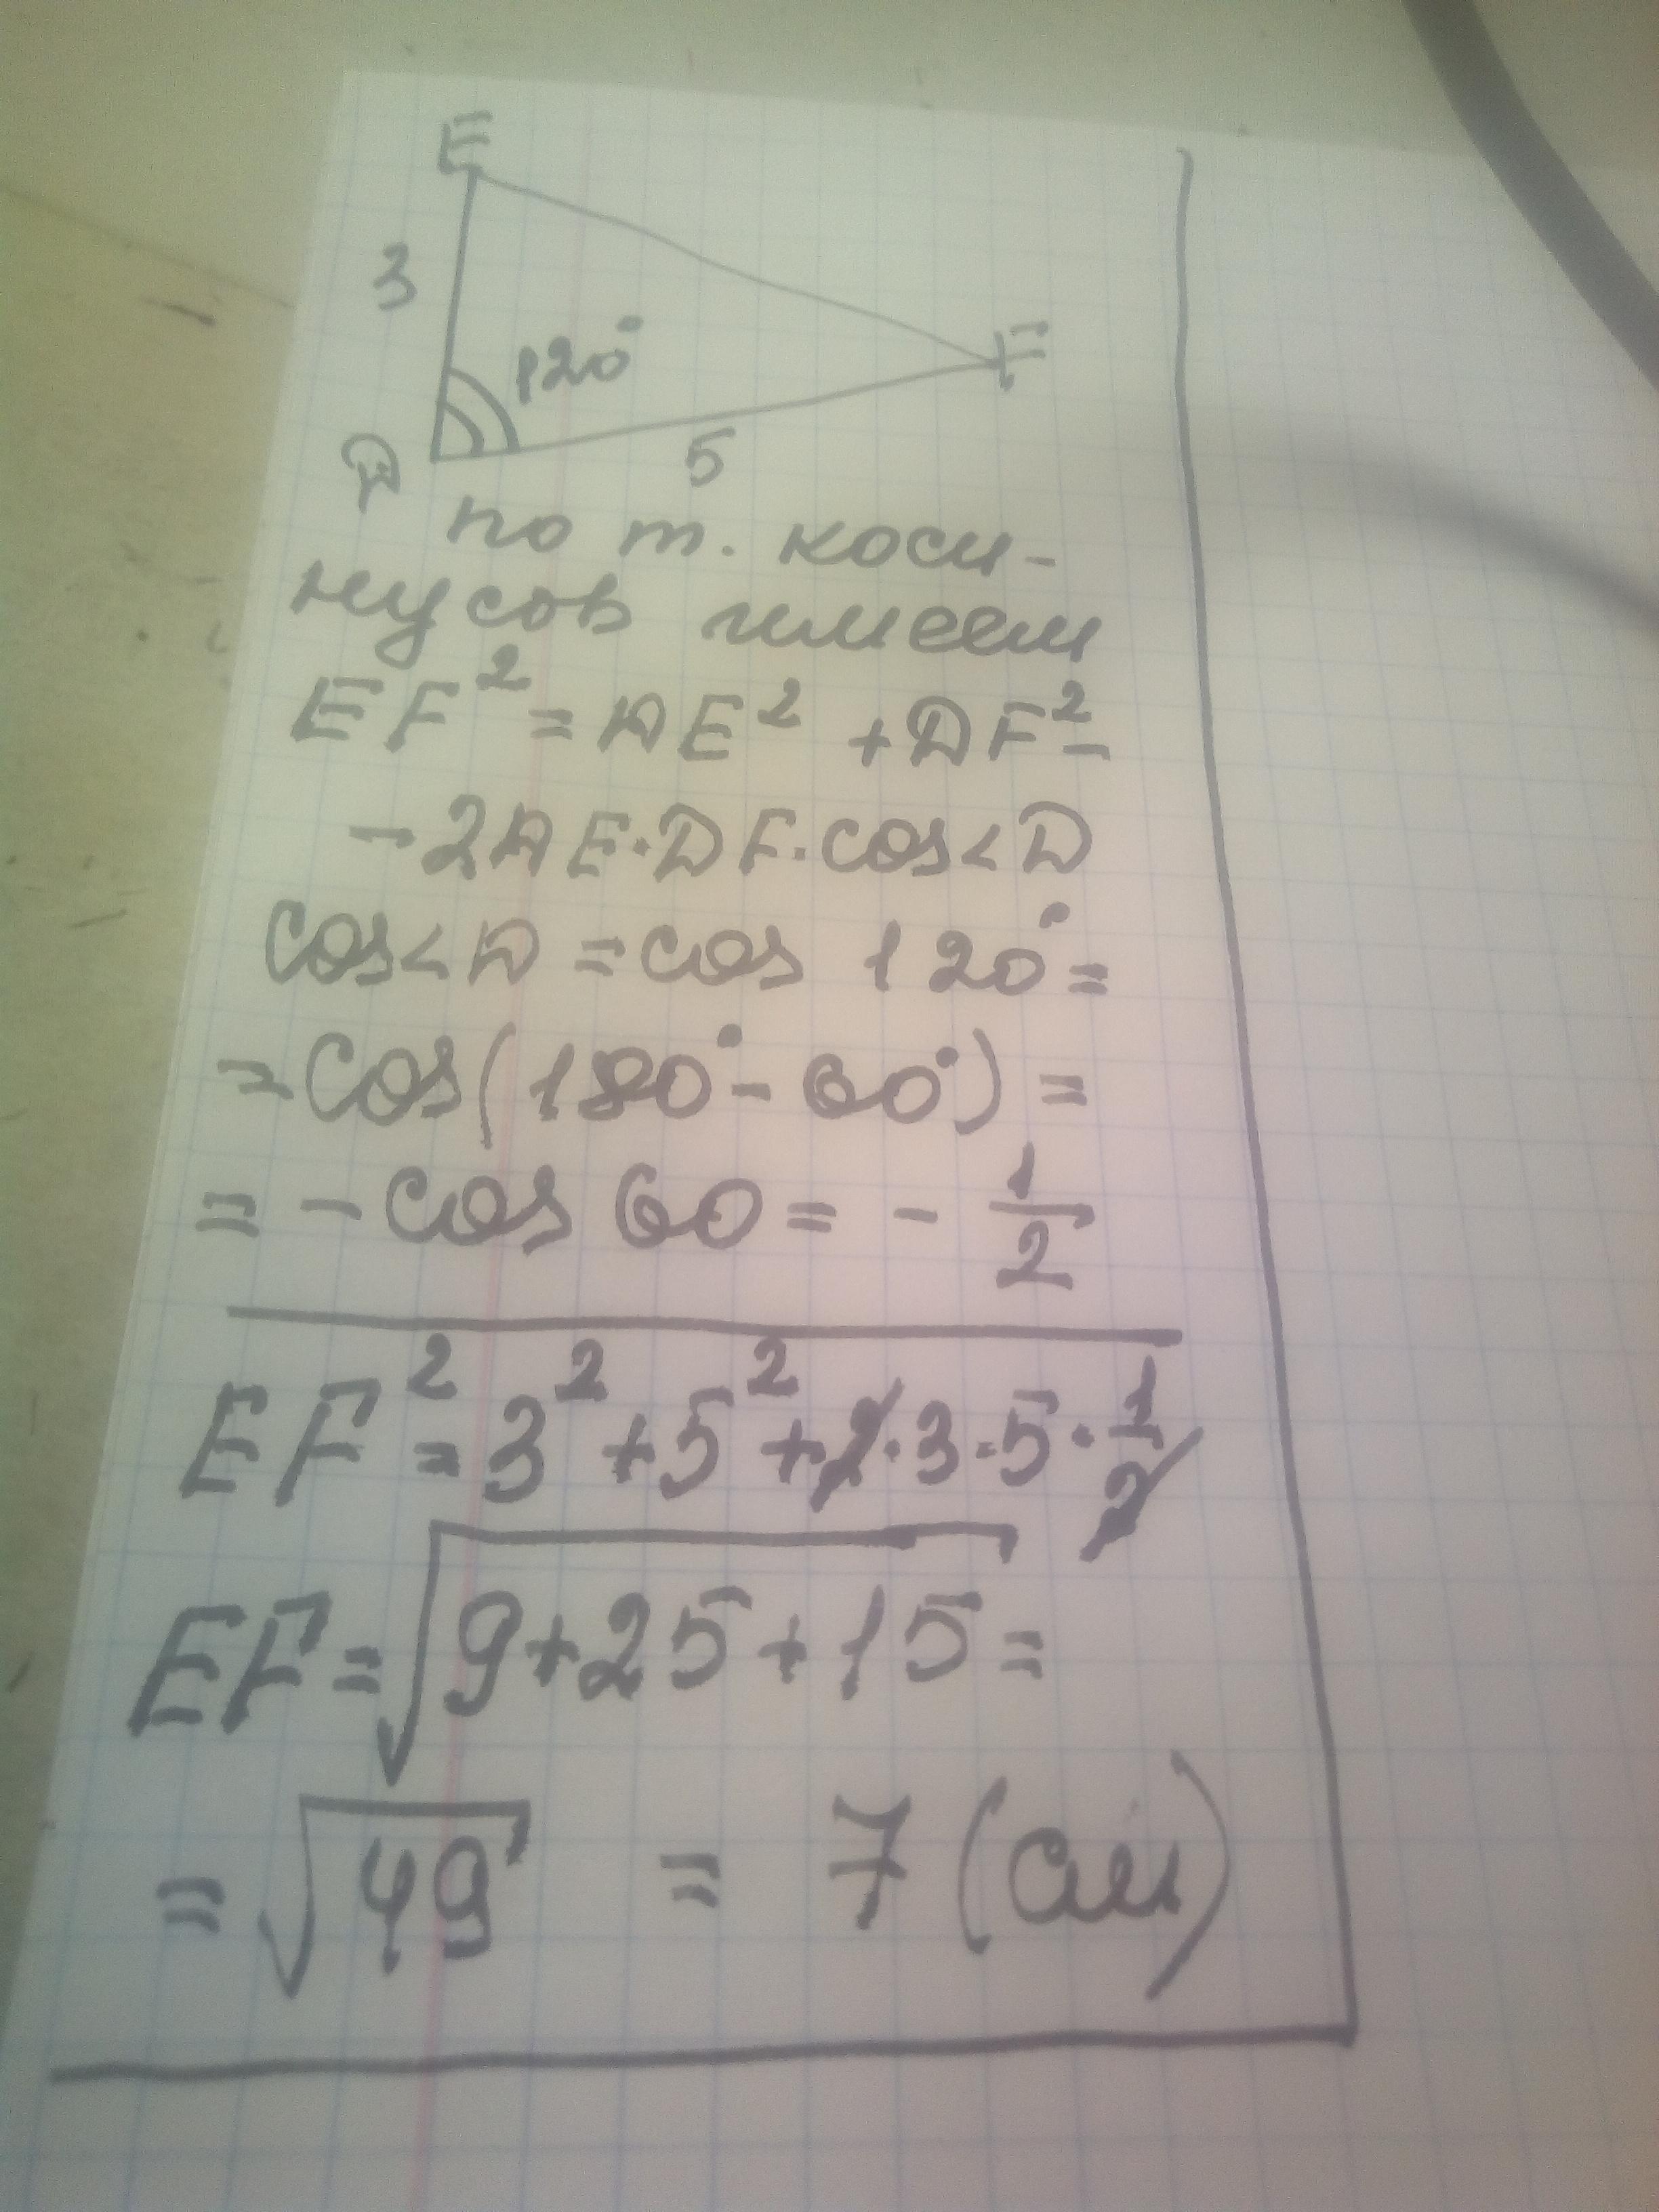 E
3
120°
F
D
5
по т. коси-
нусов имеем
EF² = DE² + DF² -
- 2DE · DF · cos < D
cos < D = cos 120° =
= cos(180° - 60°) =
= - cos 60 = - 1/2
EF² = 3² + 5² + 2 · 3 · 5 · 1/2
EF = √9 + 25 + 15 =
= √49 = 7 (см)